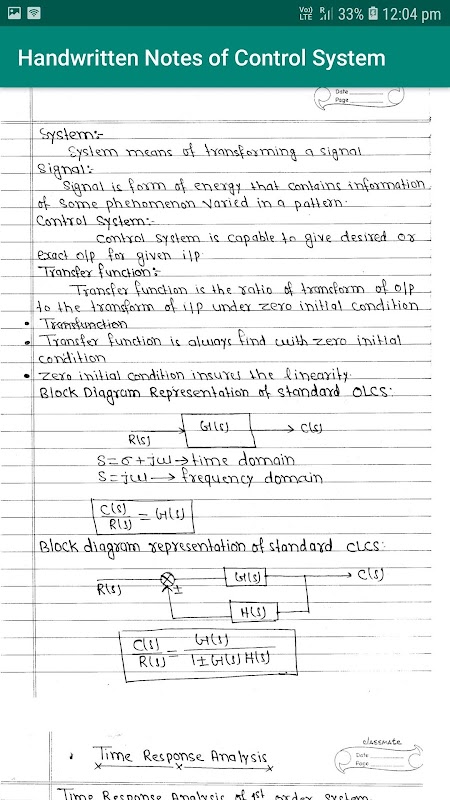 Vo)) LTE R 33% 12:04 pm
Handwritten Notes of Control System
Date
Page
System:-
System means of transforming a signal
Signal:-
Signal is form of energy that contains information
of some phenomenon varied in a pattern.
Control System:-
Control system is capable to give desired or
exact o/p for given i/p
Transfer function:-
Transfer function is the ratio of transform of o/p
to the transform of i/p under zero initial condition
• Transfunction
• Transfer function is always find with zero initial
condition
• zero initial condition insures the linearity.
Block Diagram Representation of standard OLCS:
R(s) G(s) → C(s)
S = σ + jω → time domain
S = jω → frequency domain
C(s)/R(s) = G(s)
Block diagram representation of standard CLCS:
R(s) ± G(s) → C(s)
H(s)
C(s)/R(s) = G(s)/1 ± G(s) H(s)
classmate
Date
Page
• Time Response Analysis
Time Response Analysis of 1st order system